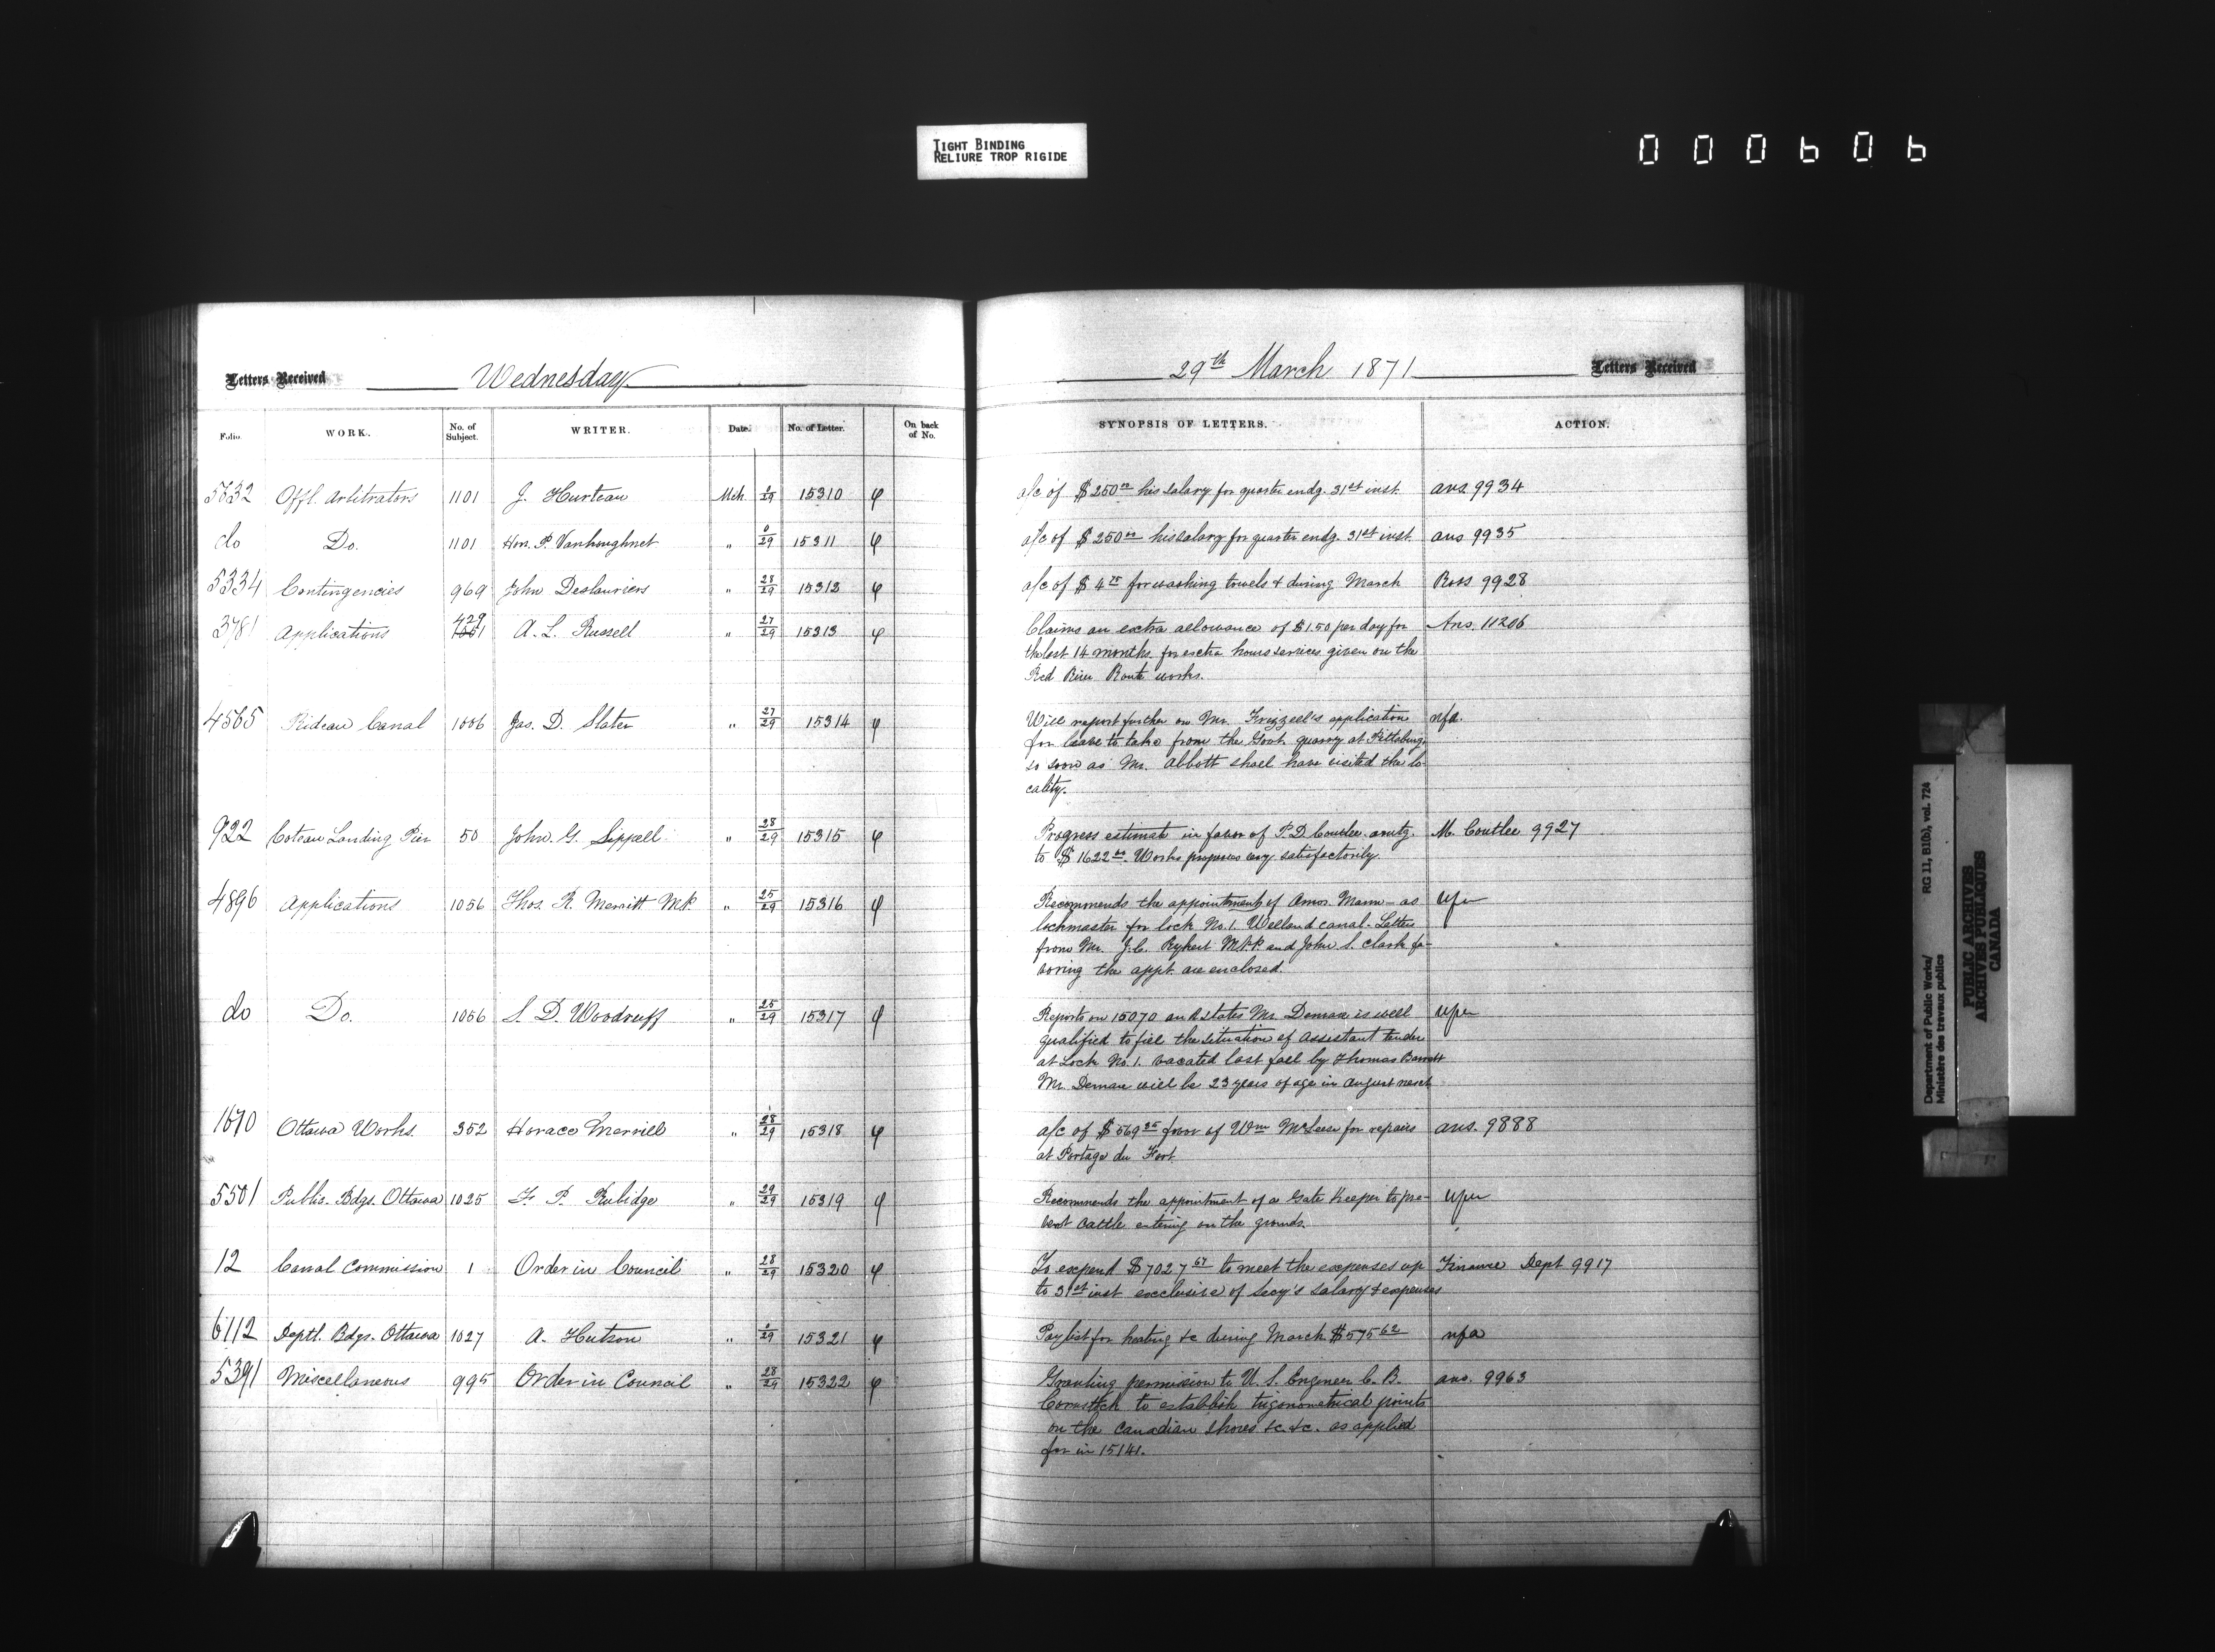 TIGHT BINDING
RELIURE TROP RIGIDE
000606
Letters Received Wednesday 29th March 1871 Letters Received
Folio. WORK. No. of Subject. WRITER. Date. No. of Letter. On back of No. SYNOPSIS OF LETTERS. ACTION.
5632 Offl. Arbitrators 1101 J. Hurteau Mch 0/29 15310 a/c of $250.00 his salary for quarter endg. 31st inst. ans 9934
do Do. 1101 Hon. P. Vankoughnet " 0/29 15311 a/c of $250.00 his salary for quarter endg. 31st inst. ans 9935
5334 Contingencies 969 John Deslauriers " 28/29 15312 a/c of $4.75 for washing towels & during March Ross 9928
3781 Applications 429 1001 A. L. Russell " 27/29 15313 Claims an extra allowance of $1.50 per day for Ans. 11206
the last 14 months for extra hours services given on the
Red River Route works.
4565 Rideau Canal 1006 Jas. D. Slater " 27/29 15314 Will report further on Mr. Frizzell's application nfa.
for leave to take from the Govt. quarry at Pittsburg
so soon as Mr. Abbott shall have visited the lo-
cality.
922 Coteau Landing Pier 50 John G. Sippell " 28/29 15315 Progress estimate in favor of P. D. Coutlee amtg. M. Coutlee 9927
to $1622.00. Works progress very satisfactorily.
4896 Applications 1056 Thos. R. Merritt MP. " 25/29 15316 Recommends the appointment of Amos Mann as
lockmaster for lock No. 1. Welland canal. Letters
from Mr. J.C. Rykert M.P.P. and John S. Clark fa-
voring the appt. are enclosed.
do Do. 1056 S. D. Woodruff " 25/29 15317 Reports on 15070 and states Mr. Demare is well
qualified to fill the situation of assistant tender
at Lock No. 1. vacated last fall by Thomas Barrett
Mr. Demare will be 23 years of age in August next
1670 Ottawa Works. 352 Horace Merrill " 28/29 15318 a/c of $569.35 favor of Wm McLeese for repairs ans. 9888
at Portage du Fort.
5501 Public Bdgs. Ottawa 1025 F. P. Rubidge " 29/29 15319 Recommends the appointment of a Gate Keeper to pre-
vent cattle entering on the grounds.
12 Canal Commission 1 Order in Council " 28/29 15320 To expend $7027.67 to meet the expenses up Finance Dept 9917
to 31st inst exclusive of Secy's salary & expenses
6112 Deptl. Bdgs. Ottawa 1027 A. Hutson " 0/29 15321 Paylist for heating &c during March $575.62 nfa
5391 Miscellaneous 995 Order in Council " 28/29 15322 Granting permission to U. S. Engineer C. B. ans. 9963
Comstock to establish trigonometrical points
on the Canadian shores &c. &c. as applied
for in 15141.
Department of Public Works/ RG 11, B1(b), vol. 724
Ministère des travaux publics
PUBLIC ARCHIVES
ARCHIVES PUBLIQUES
CANADA